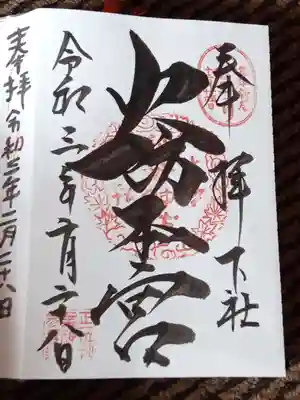 奉拝 下社
火防本宮
令和三年二月二十八日
奉拝 令和三年二月二十八日